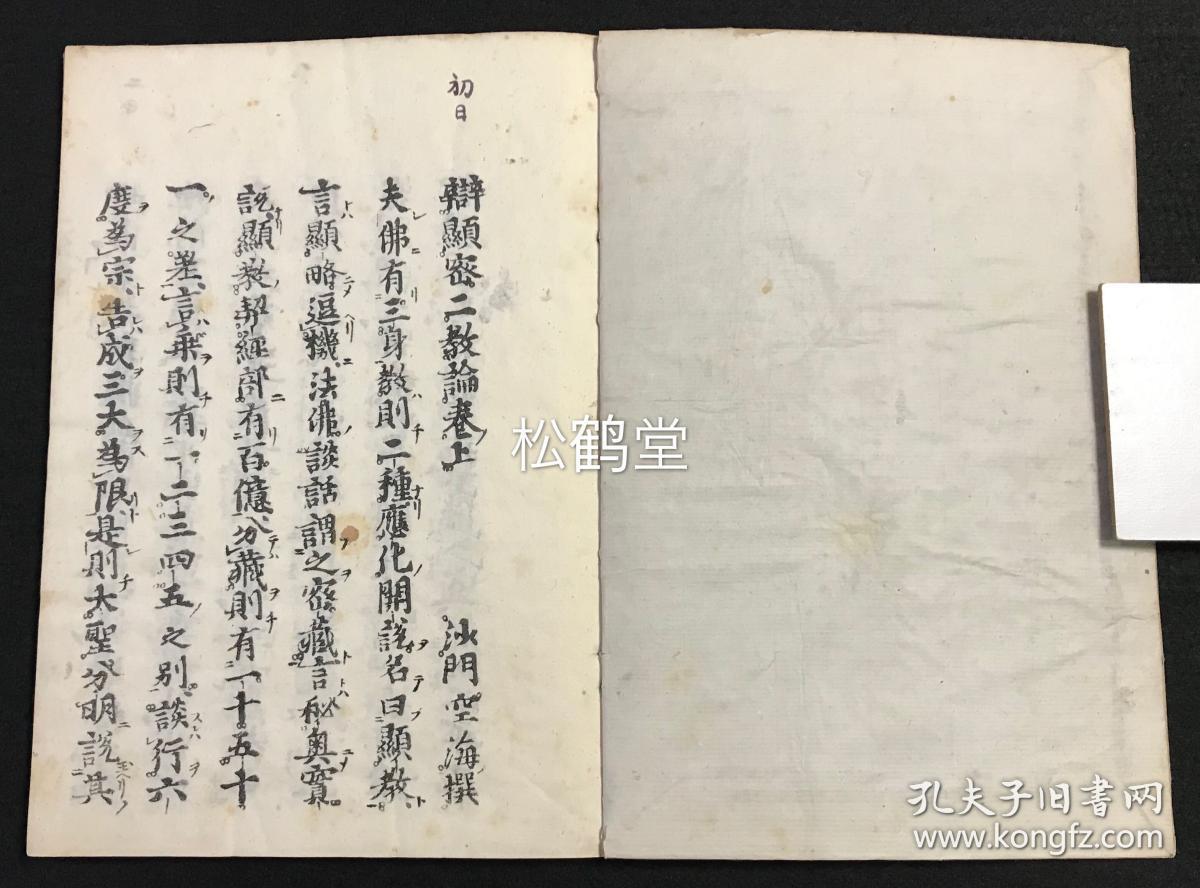 初日
辯顯密二教論卷上　沙門空海撰
夫佛有三身教則二種應化開說名曰顯教
言顯略逗機法佛談話謂之密藏言秘奧實
說顯教契經部有百億分藏則有一十五十
一之差言乘則有一二三四五之別談行六
度為宗告成三大為限是則大聖分明說其
松鹤堂
孔夫子旧书网
www.kongfz.com